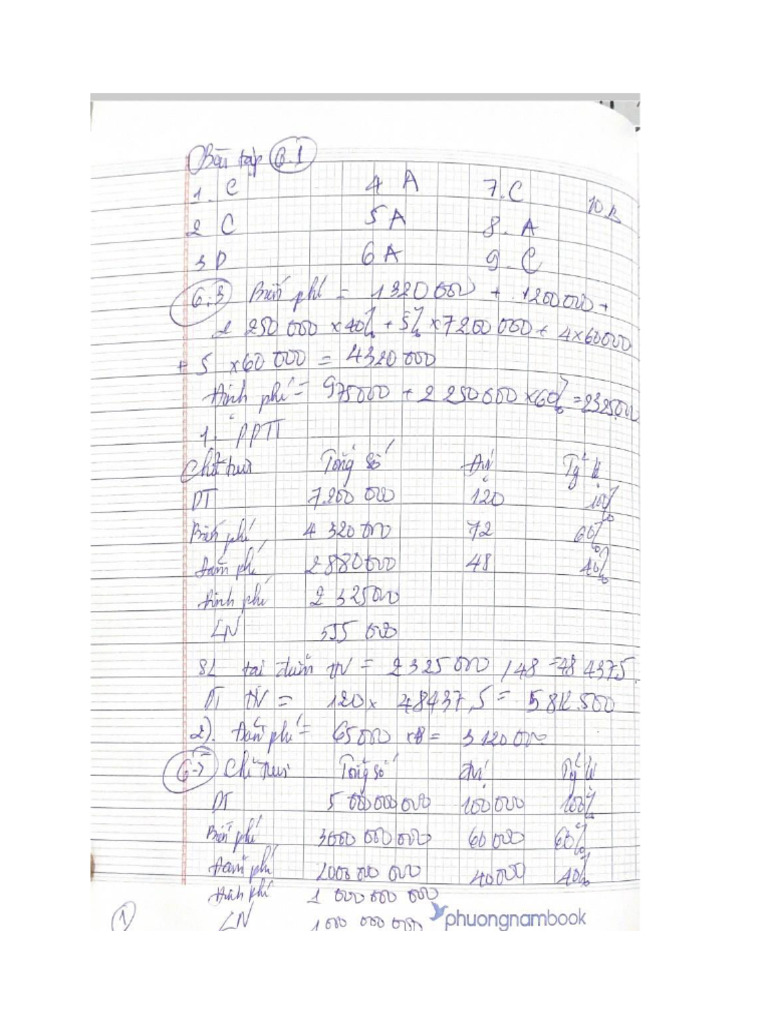 Bài tập 6.1
1. C 4 A 7. C 10 B
2 C 5 A 8. A
3 D 6 A 9. C
6.3 Biến phí = 1320 000 + 1200 000 +
2 250 000 x 40% + 5% x 7200 000 + 4 x 60000
+ 5 x 60 000 = 4320 000
Định phí = 975000 + 2 250 000 x 60% = 2325000
1. PPTT
Chỉ tiêu Tổng số Đvị Tỷ lệ
DT 7.200 000 120 100%
Biến phí 4 320 000 72 60%
Đảm phí 2 880 000 48 40%
Định phí 2 325000
LN 555 000
SL tại điểm HV = 2325 000 / 48 = 48 437,5
DT HV = 120 x 48437,5 = 5 812.500
2). Đảm phí = 65000 x 48 = 3 120 000
Chỉ tiêu Tổng số Đvị Tỷ lệ
DT 5 000 000 000 100 000 100%
Biến phí 3000 000 000 60 000 60%
Đảm phí 2000 000 000 40 000 40%
Định phí 1 000 000 000
LN 1 000 000 000
1
phuongnambook